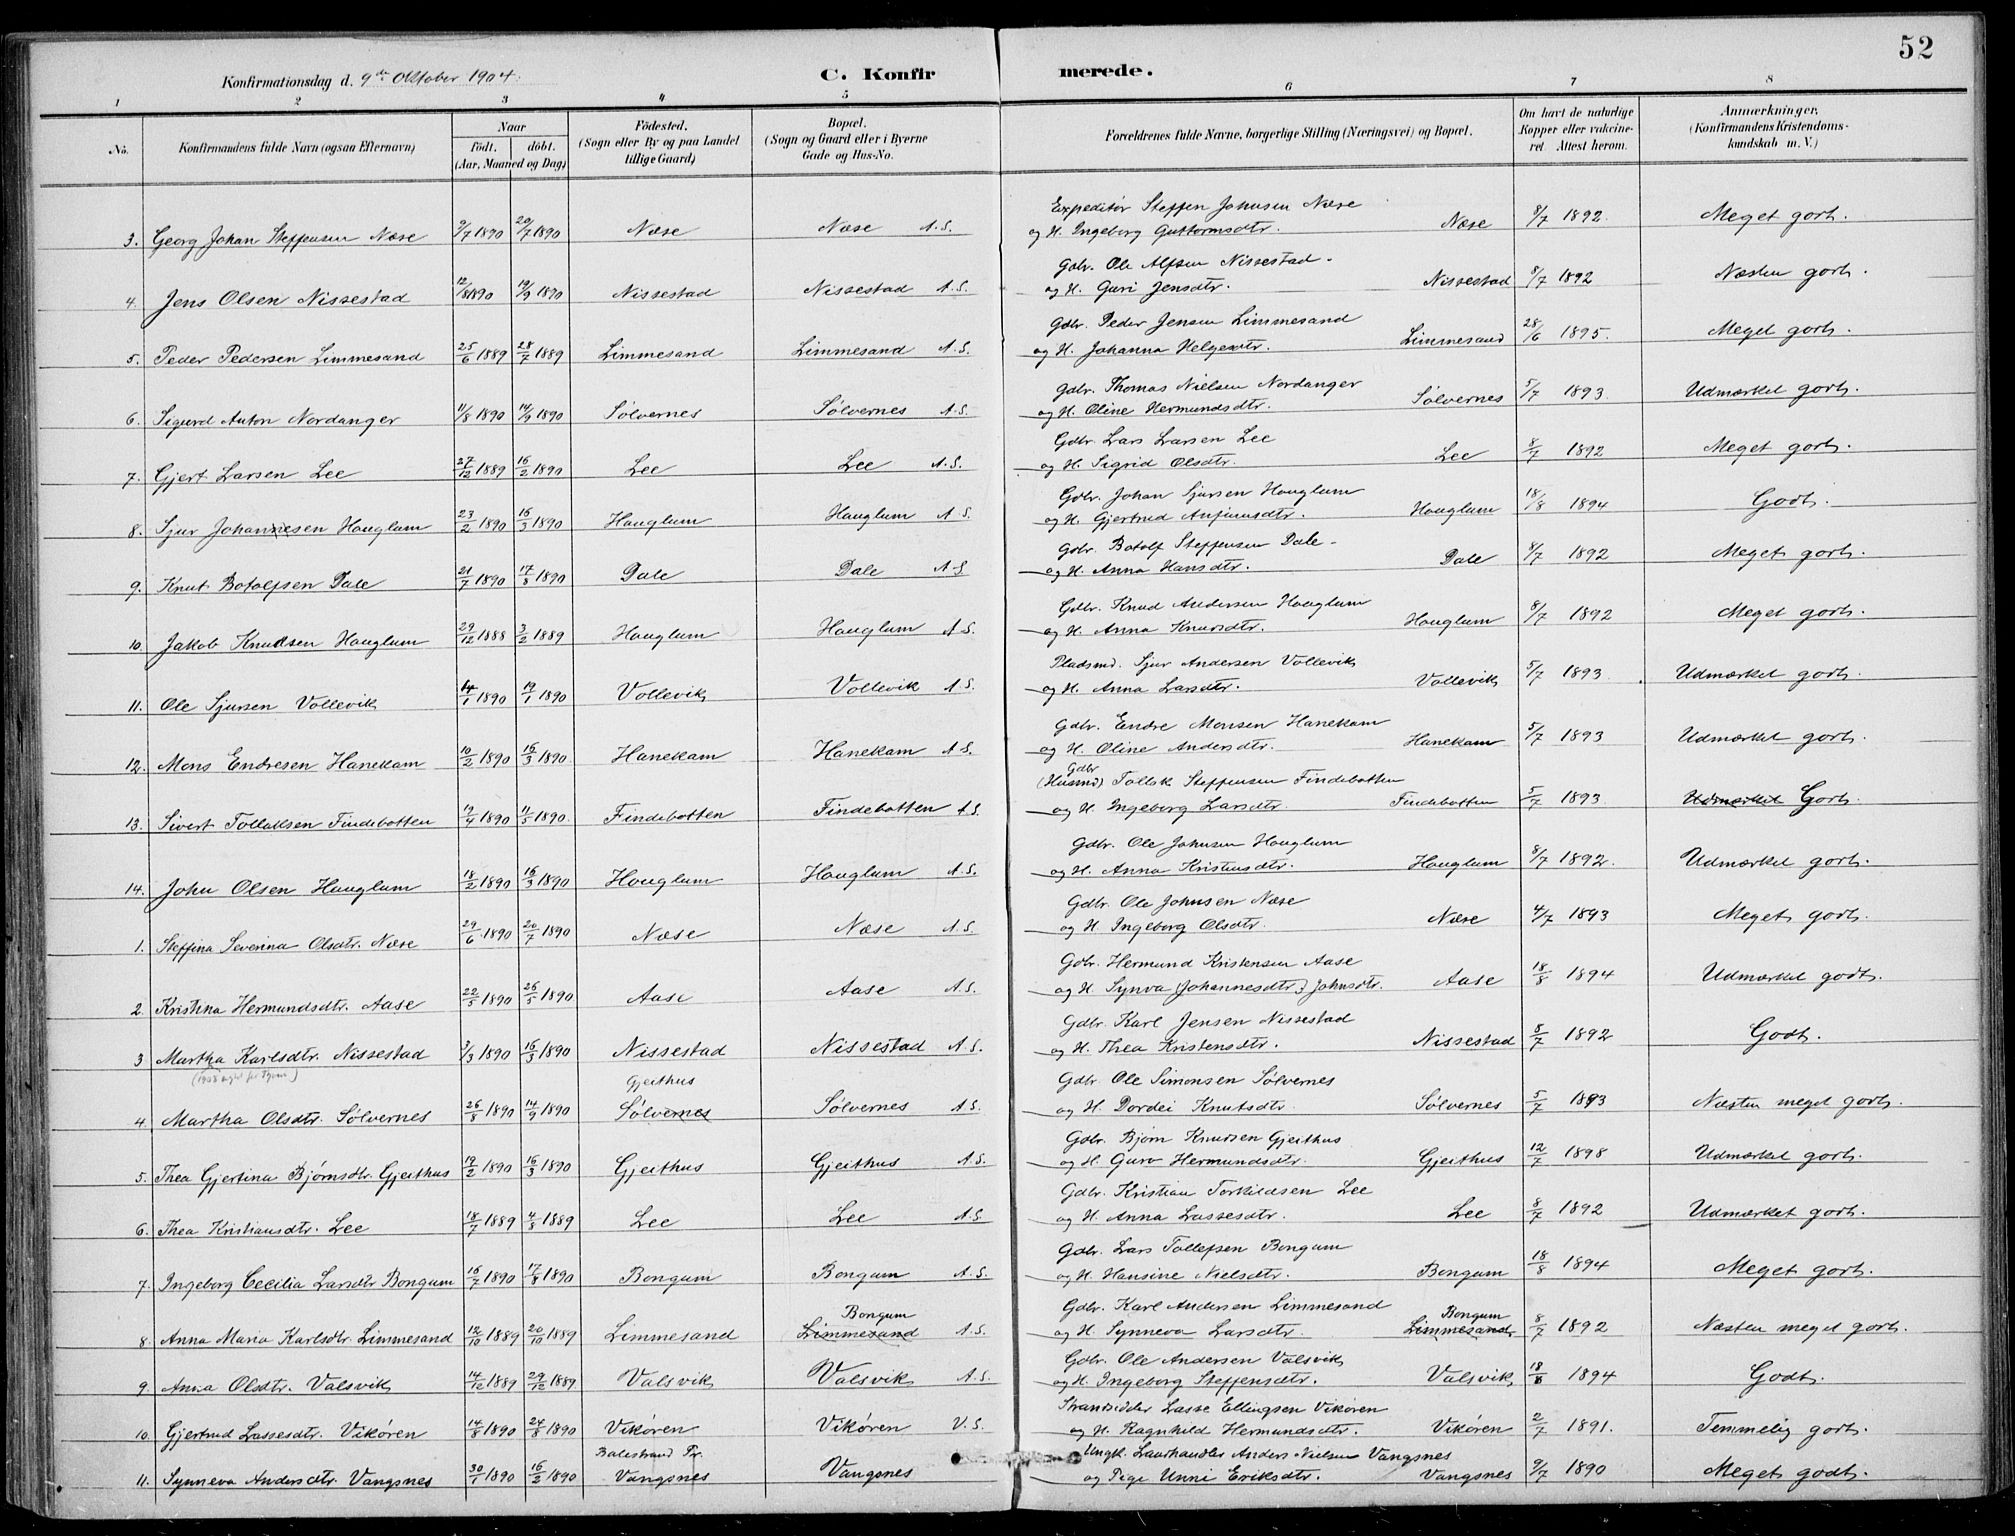 52
Konfirmationsdag d. 9de Oktober 1904.
C. Konfirmerede.
1 2 3 4 5 6 7 8
No. Konfirmandens fulde Navn (ogsaa Efternavn) Naar født. døbt. (Aar, Maaned og Dag) Fødested. (Sogn eller By og paa Landet tillige Gaard) Bopæl. (Sogn og Gaard eller i Byerne Gade og Hus-No. Forældrenes fulde Navne, borgerlige Stilling (Næringsvei) og Bopæl. Om havt de naturlige Kopper eller vakcineret Attest herom. Anmærkninger. (Konfirmandens Kristendomskundskab m. V.)
Expeditør Steffen Johnsen Næse
3. Georg Johan Steffensen Næse 9/7 1890 20/7 1890 Næse Næse A.S. og H. Ingeborg Guttormsdtr. Næse 8/7 1892. Meget godt.
Gdbr. Ole Alfsen Nissestad
4. Jens Olsen Nissestad 12/8 1890 14/9 1890 Nissestad Nissestad A.S. og H. Guri Jensdtr. Nissestad 8/7 1892 Næsten godt.
Gdbr. Peder Jensen Limmesand
5. Peder Pedersen Limmesand 25/6 1889 28/7 1889 Limmesand Limmesand A.S. og H. Johanna Helgesdtr. Limmesand 28/6 1895. Meget godt.
Gdbr. Thomas Nielsen Nordanger
6. Sigurd Anton Nordanger 11/8 1890 14/9 1890 Sølvernes Sølvernes A.S. og H. Oline Hermundsdtr. Sølvernes 5/7 1893. Udmærket godt.
Gdbr. Lars Larsen Lee
7. Gjert Larsen Lee 27/12 1889 16/2 1890 Lee Lee A.S. og H. Sigrid Olsdtr. Lee 8/7 1892 Meget godt.
Gdbr. Johan Sjursen Hauglum
8. Sjur Johannesen Hauglum 23/2 1890 16/3 1890 Hauglum Hauglum A.S. og H. Gjertrud Anfinnsdtr. Hauglum 18/8 1894 Godt.
Gdbr. Botolf Steffensen Dale
9. Knut Botolfsen Dale 21/7 1890 17/8 1890 Dale Dale A.S. og H. Anna Hansdtr. Dale 8/7 1892 Meget godt.
Gdbr. Knud Andersen Hauglum
10. Jakob Knudsen Hauglum 29/12 1888 3/2 1889 Hauglum Hauglum A.S. og H. Anna Knudsdtr. Hauglum 8/7 1892 Meget godt.
Pladsmd. Sjur Andersen Vollevik
11. Ole Sjursen Vollevik 14/1 1890 19/1 1890 Vollevik Vollevik A.S. og H. Anna Larsdtr. Vollevik 5/7 1893. Udmærket godt.
Gdbr. Endre Monsen Hanekam
12. Mons Endresen Hanekam 10/2 1890 16/3 1890 Hanekam Hanekam A.S. og H. Oline Andersdtr. Hanekam 5/7 1893 Udmærket godt.
Gdbr
(Husmd) Tollak Steffensen Findebotten
13. Sivert Tollaksen Findebotten 19/4 1890 11/5 1890. Findebotten Findebotten A.S. og H. Ingeborg Larsdtr. Findebotten 5/7 1893. Udmærket Godt.
Gdbr. Ole Johnsen Hauglum
14. John Olsen Hauglum 18/2 1890 16/3 1890 Hauglum Hauglum A.S. og H. Anna Kristensdtr. Hauglum 8/7 1892. Udmærket godt.
Gdbr. Ole Johnsen Næse
1. Steffina Severina Olsdtr. Næse 29/6 1890 20/7 1890 Næse Næse A.S. og H. Ingeborg Olsdtr. Næse 4/7 1893 Meget godt.
Gdbr. Hermund Kristensen Aase
2. Kristina Hermundsdtr. Aase 22/5 1890 26/5 1890 Aase Aase A.S. og H. Synva (Johannesdtr.) Johnsdtr. Aase 18/8 1894 Udmærket godt.
Gdbr. Karl Jensen Nissestad
3 Martha Karlsdtr. Nissestad 3/3 1890 16/3 1890 Nissestad Nissestad A.S. og H. Thea Kristensdtr. Nissestad 8/7 1892 Godt.
Gjeithus Gdbr. Ole Simonsen Sølvernes
4. Martha Olsdtr. Sølvernes 26/8 1890 14/9 1890 Sølvernes Sølvernes A.S. og H. Dordei Knutsdtr. Sølvernes 5/7 1893 Næsten meget godt.
Gdbr. Bjørn Knudsen Gjeithus
5. Thea Gjertina Bjørnsdtr. Gjeithus 19/2 1890 16/3 1890 Gjeithus Gjeithus A.S. og H. Guro Hermundsdtr. Gjeithus 12/7 1898 Udmærket godt.
Gdbr. Kristian Torkildsen Lee
6. Thea Kristiansdtr. Lee 18/7 1889 4/8 1889 Lee Lee A.S. og H. Anna Lassesdtr. Lee 8/7 1892 Udmærket godt.
Gdbr. Lars Tollefsen Bongum
7. Ingeborg Cecilia Larsdtr Bongum 16/7 1890 17/8 1890 Bongum Bongum A.S. og H. Hansine Nielsdtr. Bongum 18/8 1894 Meget godt.
Bongum Gdbr. Karl Andersen Limmesand Bongum
8. Anna Maria Karlsdtr. Limmesand 12/10 1889 20/10 1889 Limmesand Limmesand A.S. og H. Synneva Larsdtr. Limmesand 8/7 1892 Næsten meget godt.
Gdbr. Ole Andersen Valsvik
9. Anna Olsdtr. Valsvik 14/12 1889 29/12 1889 Valsvik Valsvik A.S. og H. Ingeborg Steffensdtr. Valsvik 18/8 1894 Godt.
Strandsidder Lasse Ellingsen Vikøren
10. Gjertrud Lassesdtr. Vikøren 14/8 1890 24/8 1890 Vikøren Vikøren V.S. og H. Ragnhild Hermundsdtr. Vikøren 2/7 1891. Temmelig godt.
Balestrand Pr. Ungk. Laurhandler Anders Nielsen Vangsnes
11. Synneva Andersdtr. Vangsnes 30/1 1890 16/2 1890 Vangsnes Vangsnes og Pige Unni Eriksdtr. Vangsnes 9/7 1890 Meget godt.